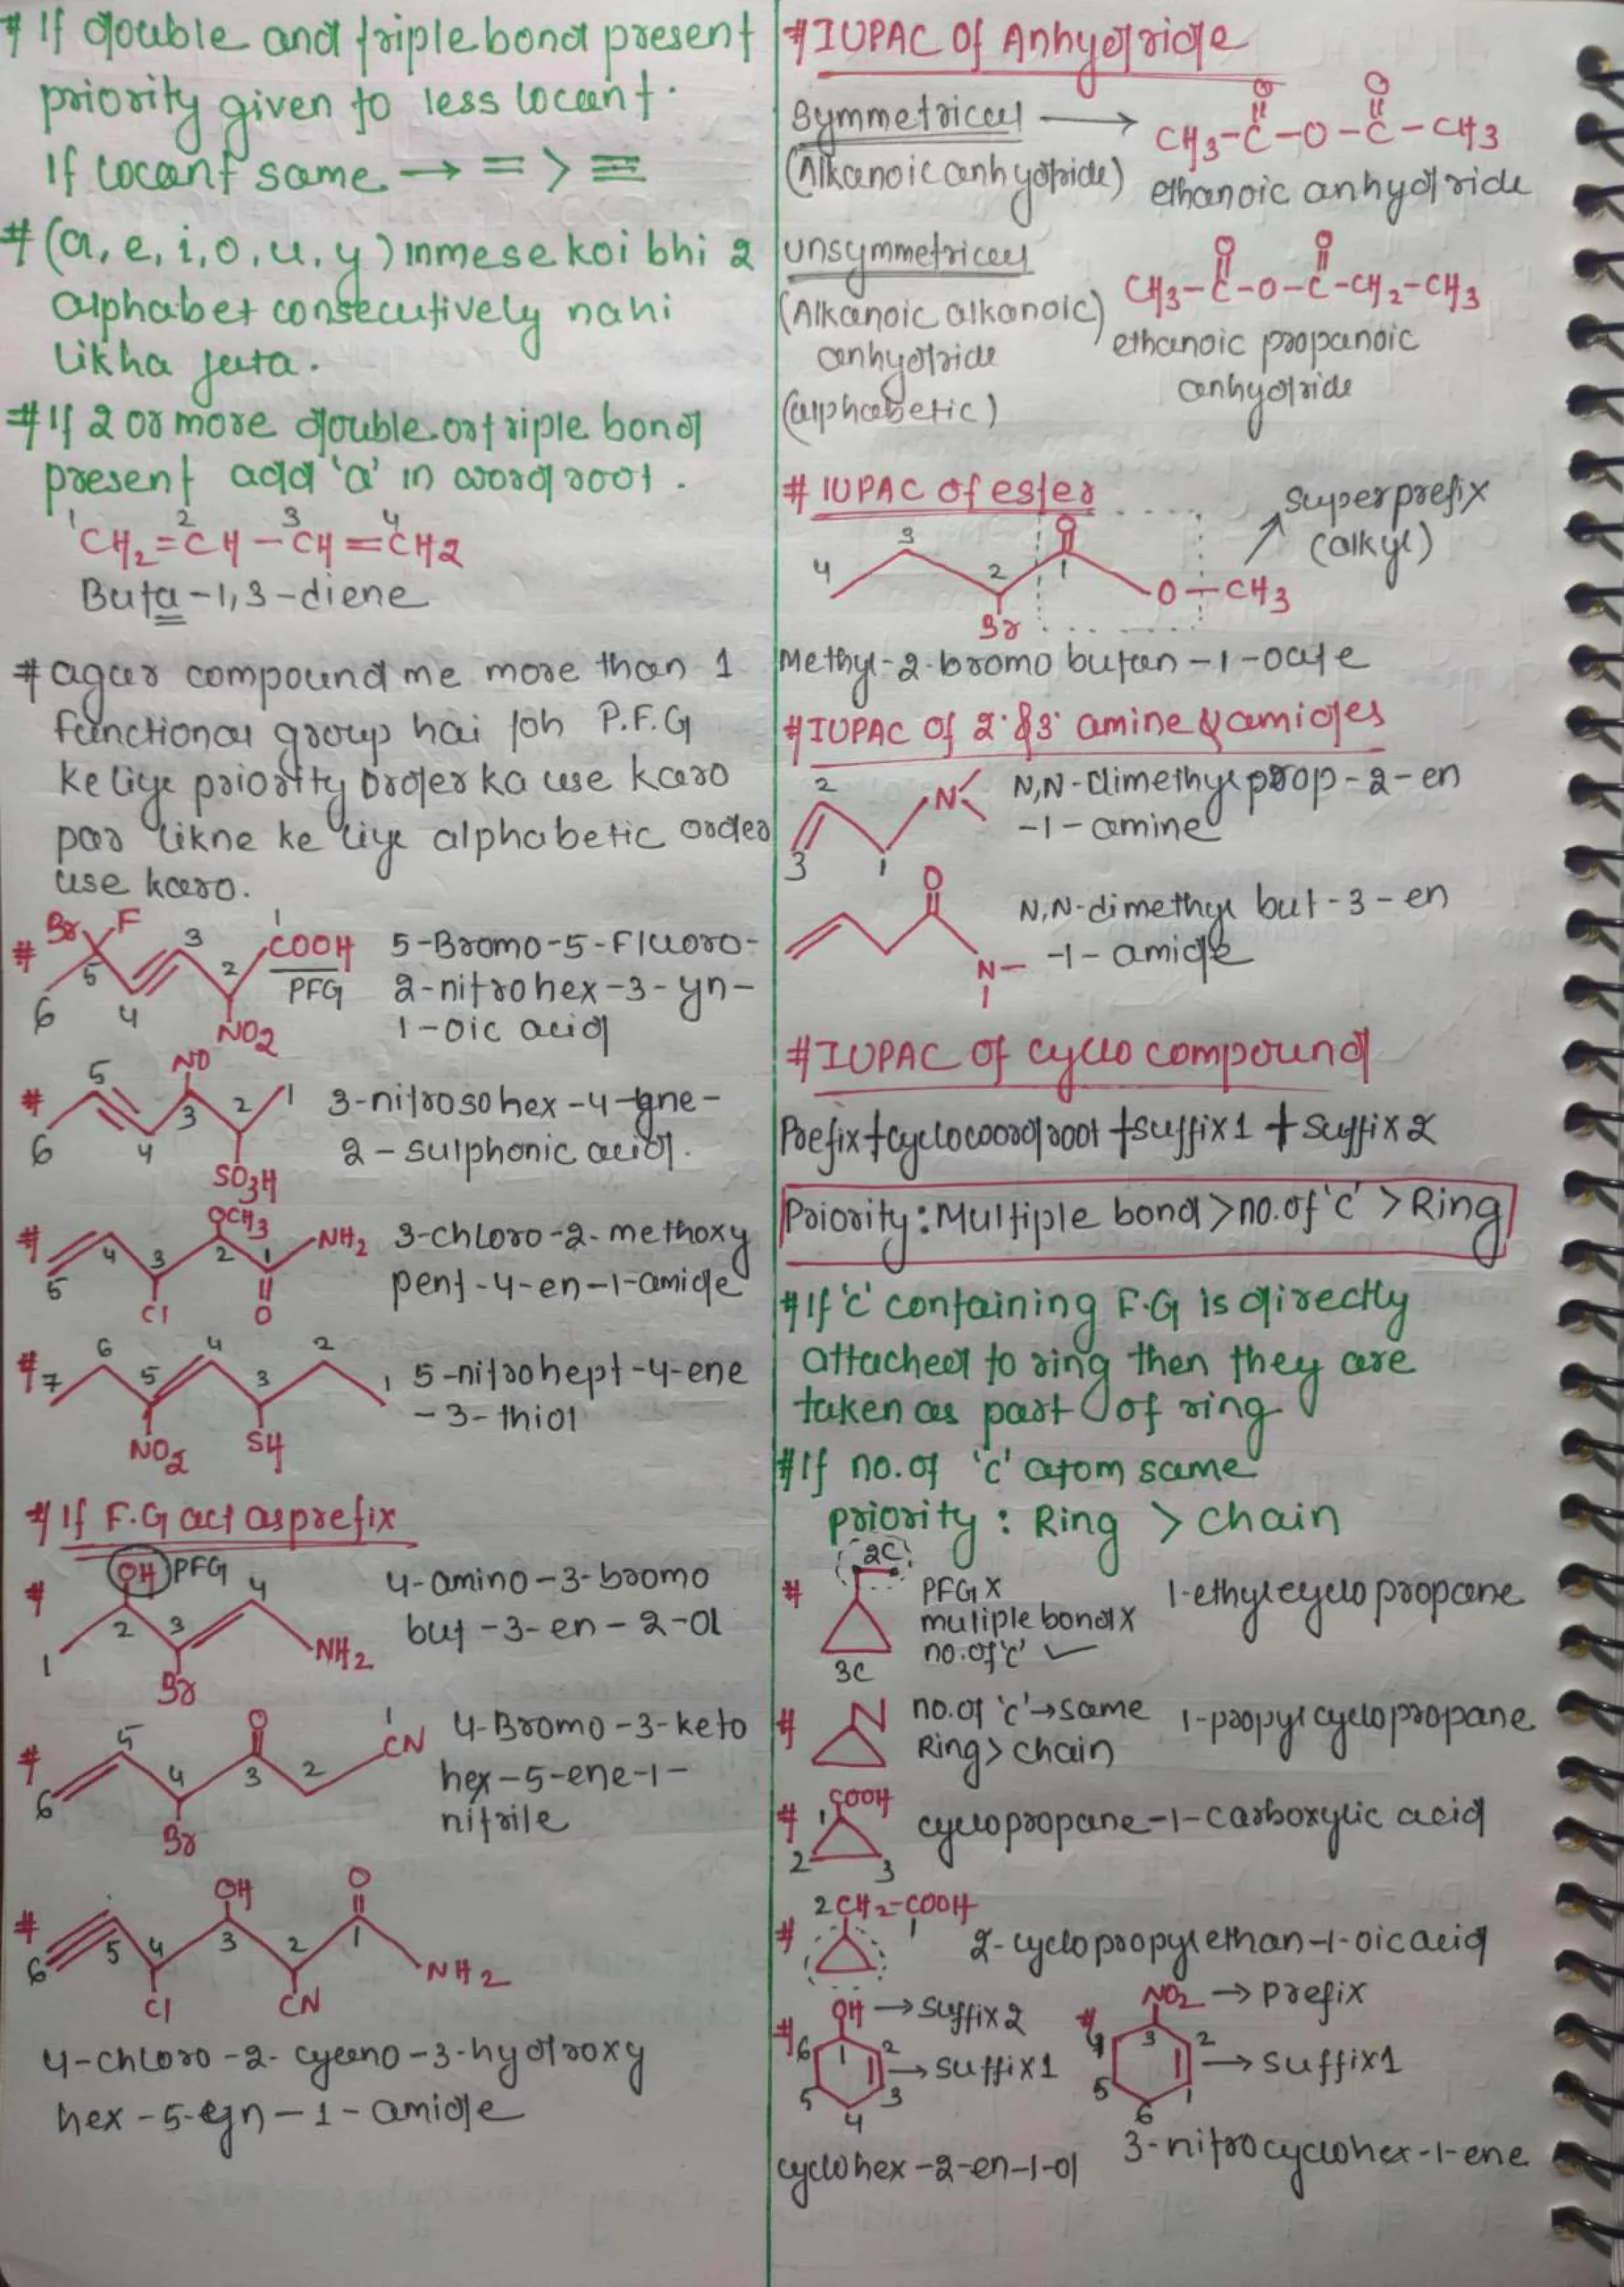 # If double and triple bond present
priority given to less locant.
If locant same → = > ≡
# (a, e, i, o, u, y) inmese koi bhi 2
alphabet consecutively nahi
likha jata.
# If 2 or more double or triple bond
present add 'a' in word root.
1 2 3 4
CH2=CH–CH=CH2
Buta-1,3-diene
# agar compound me more than 1
functional group hai joh P.F.G
ke liye priority order ka use karo
par likne ke liye alphabetic order
use karo.
# Br F 6 5 4 3 2 1 COOH PFG NO2
5-Bromo-5-Fluoro-
2-nitrohex-3-yn-
1-oic acid
# 6 5 4 NO 3 2 1 SO3H
3-nitrosohex-4-yne-
2-sulphonic acid.
# 5 4 3 Cl OCH3 2 1 O NH2
3-chloro-2-methoxy
pent-4-en-1-amide
# 7 6 5 NO2 4 3 SH 2 1
5-nitrohept-4-ene
-3-thiol
# If F.G act as prefix
# OH PFG 1 2 3 Br 4 NH2
4-amino-3-bromo
but-3-en-2-ol
# 6 5 4 Br O 3 2 1 CN
4-Bromo-3-keto
hex-5-ene-1-
nitrile
# 6 5 4 Cl OH 3 2 CN O 1 NH2
4-chloro-2-cyano-3-hydroxy
hex-5-yn-1-amide
# IUPAC of Anhydride
Symmetrical → CH3-C-O-C-CH3
O O
(Alkanoic anhydride) ethanoic anhydride
unsymmetrical
O O
CH3-C-O-C-CH2-CH3
(Alkanoic alkanoic)
anhydride
(alphabetic)
ethanoic propanoic
anhydride
# IUPAC of ester
superprefix
(alkyl)
4 3 2 Br O 1 O-CH3
Methyl-2-bromo butan-1-oate
# IUPAC of 2° & 3° amine & amides
2 3 1 N
N,N-dimethyl prop-2-en
-1-amine
O N
N,N-dimethyl but-3-en
-1-amide
# IUPAC of cyclo compound
Prefix+cyclowordroot+suffix1+suffix2
Priority: Multiple bond > no. of 'c' > Ring
# If 'c' containing F.G is directly
attached to ring then they are
taken as part of ring
# If no. of 'c' atom same
priority : Ring > chain
# 2C 3C
PFG X
muliple bond X
no. of 'c' ✓
1-ethylcyclo propane
# no. of 'c' → same
Ring > chain
1-propyl cyclopropane
# 1 COOH 2 3
cyclopropane-1-carboxylic acid
# 2CH2-COOH 1
2-cyclopropyl ethan-1-oic acid
# OH → suffix 2
6 1 2 → suffix1
5 4 3
cyclohex-2-en-1-ol
# NO2 → prefix
4 3 2 → suffix1
5 6 1
3-nitrocyclohex-1-ene